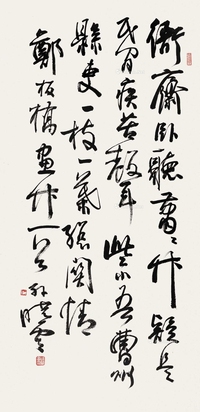 衙齋卧聽蕭〻竹疑是
民間疾苦聲些小吾曹州
縣吏一枝一葉總關情
鄭板橋畫竹一 孫曉雲